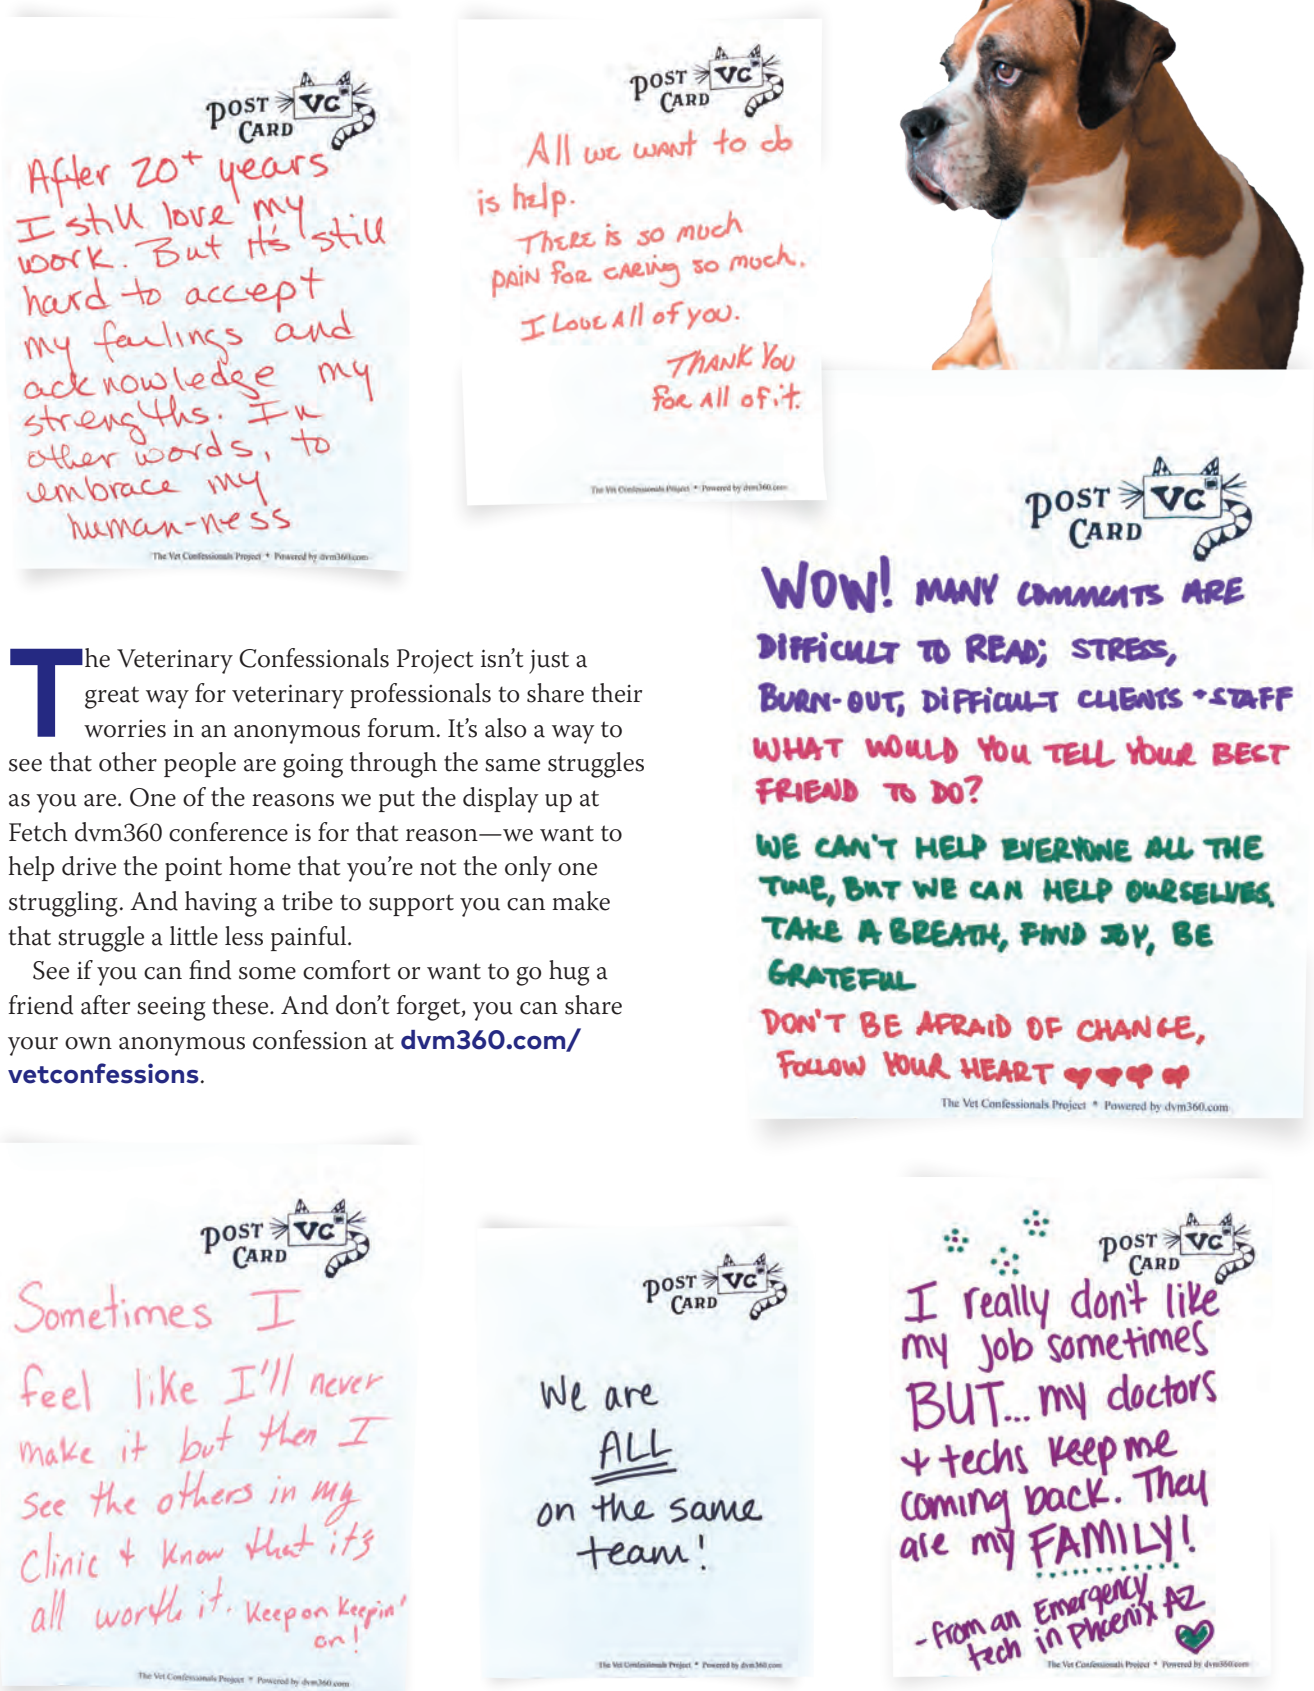 POST CARD VC
After 20+ years
I still love my
work. But it's still
hard to accept
my failings and
acknowledge my
strengths. In
other words, to
embrace my
human-ness
The Vet Confessionals Project * Powered by dvm360.com
POST CARD VC
All we want to do
is help.
There is so much
pain for caring so much.
I love all of you.
Thank You
for all of it.
The Vet Confessionals Project * Powered by dvm360.com
POST CARD VC
WOW! MANY COMMENTS ARE
DIFFICULT TO READ; STRESS,
BURN-OUT, DIFFICULT CLIENTS + STAFF
WHAT WOULD YOU TELL YOUR BEST
FRIEND TO DO?
WE CAN'T HELP EVERYONE ALL THE
TIME, BUT WE CAN HELP OURSELVES.
TAKE A BREATH, FIND JOY, BE
GRATEFUL
DON'T BE AFRAID OF CHANGE,
FOLLOW YOUR HEART
The Vet Confessionals Project * Powered by dvm360.com
The Veterinary Confessionals Project isn't just a
great way for veterinary professionals to share their
worries in an anonymous forum. It's also a way to
see that other people are going through the same struggles
as you are. One of the reasons we put the display up at
Fetch dvm360 conference is for that reason—we want to
help drive the point home that you're not the only one
struggling. And having a tribe to support you can make
that struggle a little less painful.
See if you can find some comfort or want to go hug a
friend after seeing these. And don't forget, you can share
your own anonymous confession at dvm360.com/
vetconfessions.
POST CARD VC
Sometimes I
feel like I'll never
make it but then I
see the others in my
clinic + know that it's
all worth it. Keep on Keepin'
on!
The Vet Confessionals Project * Powered by dvm360.com
POST CARD VC
We are
ALL
on the same
team!
The Vet Confessionals Project * Powered by dvm360.com
POST CARD VC
I really don't like
my job sometimes
BUT... my doctors
+ techs keep me
coming back. They
are my FAMILY!
- from an Emergency
tech in Phoenix AZ
The Vet Confessionals Project * Powered by dvm360.com